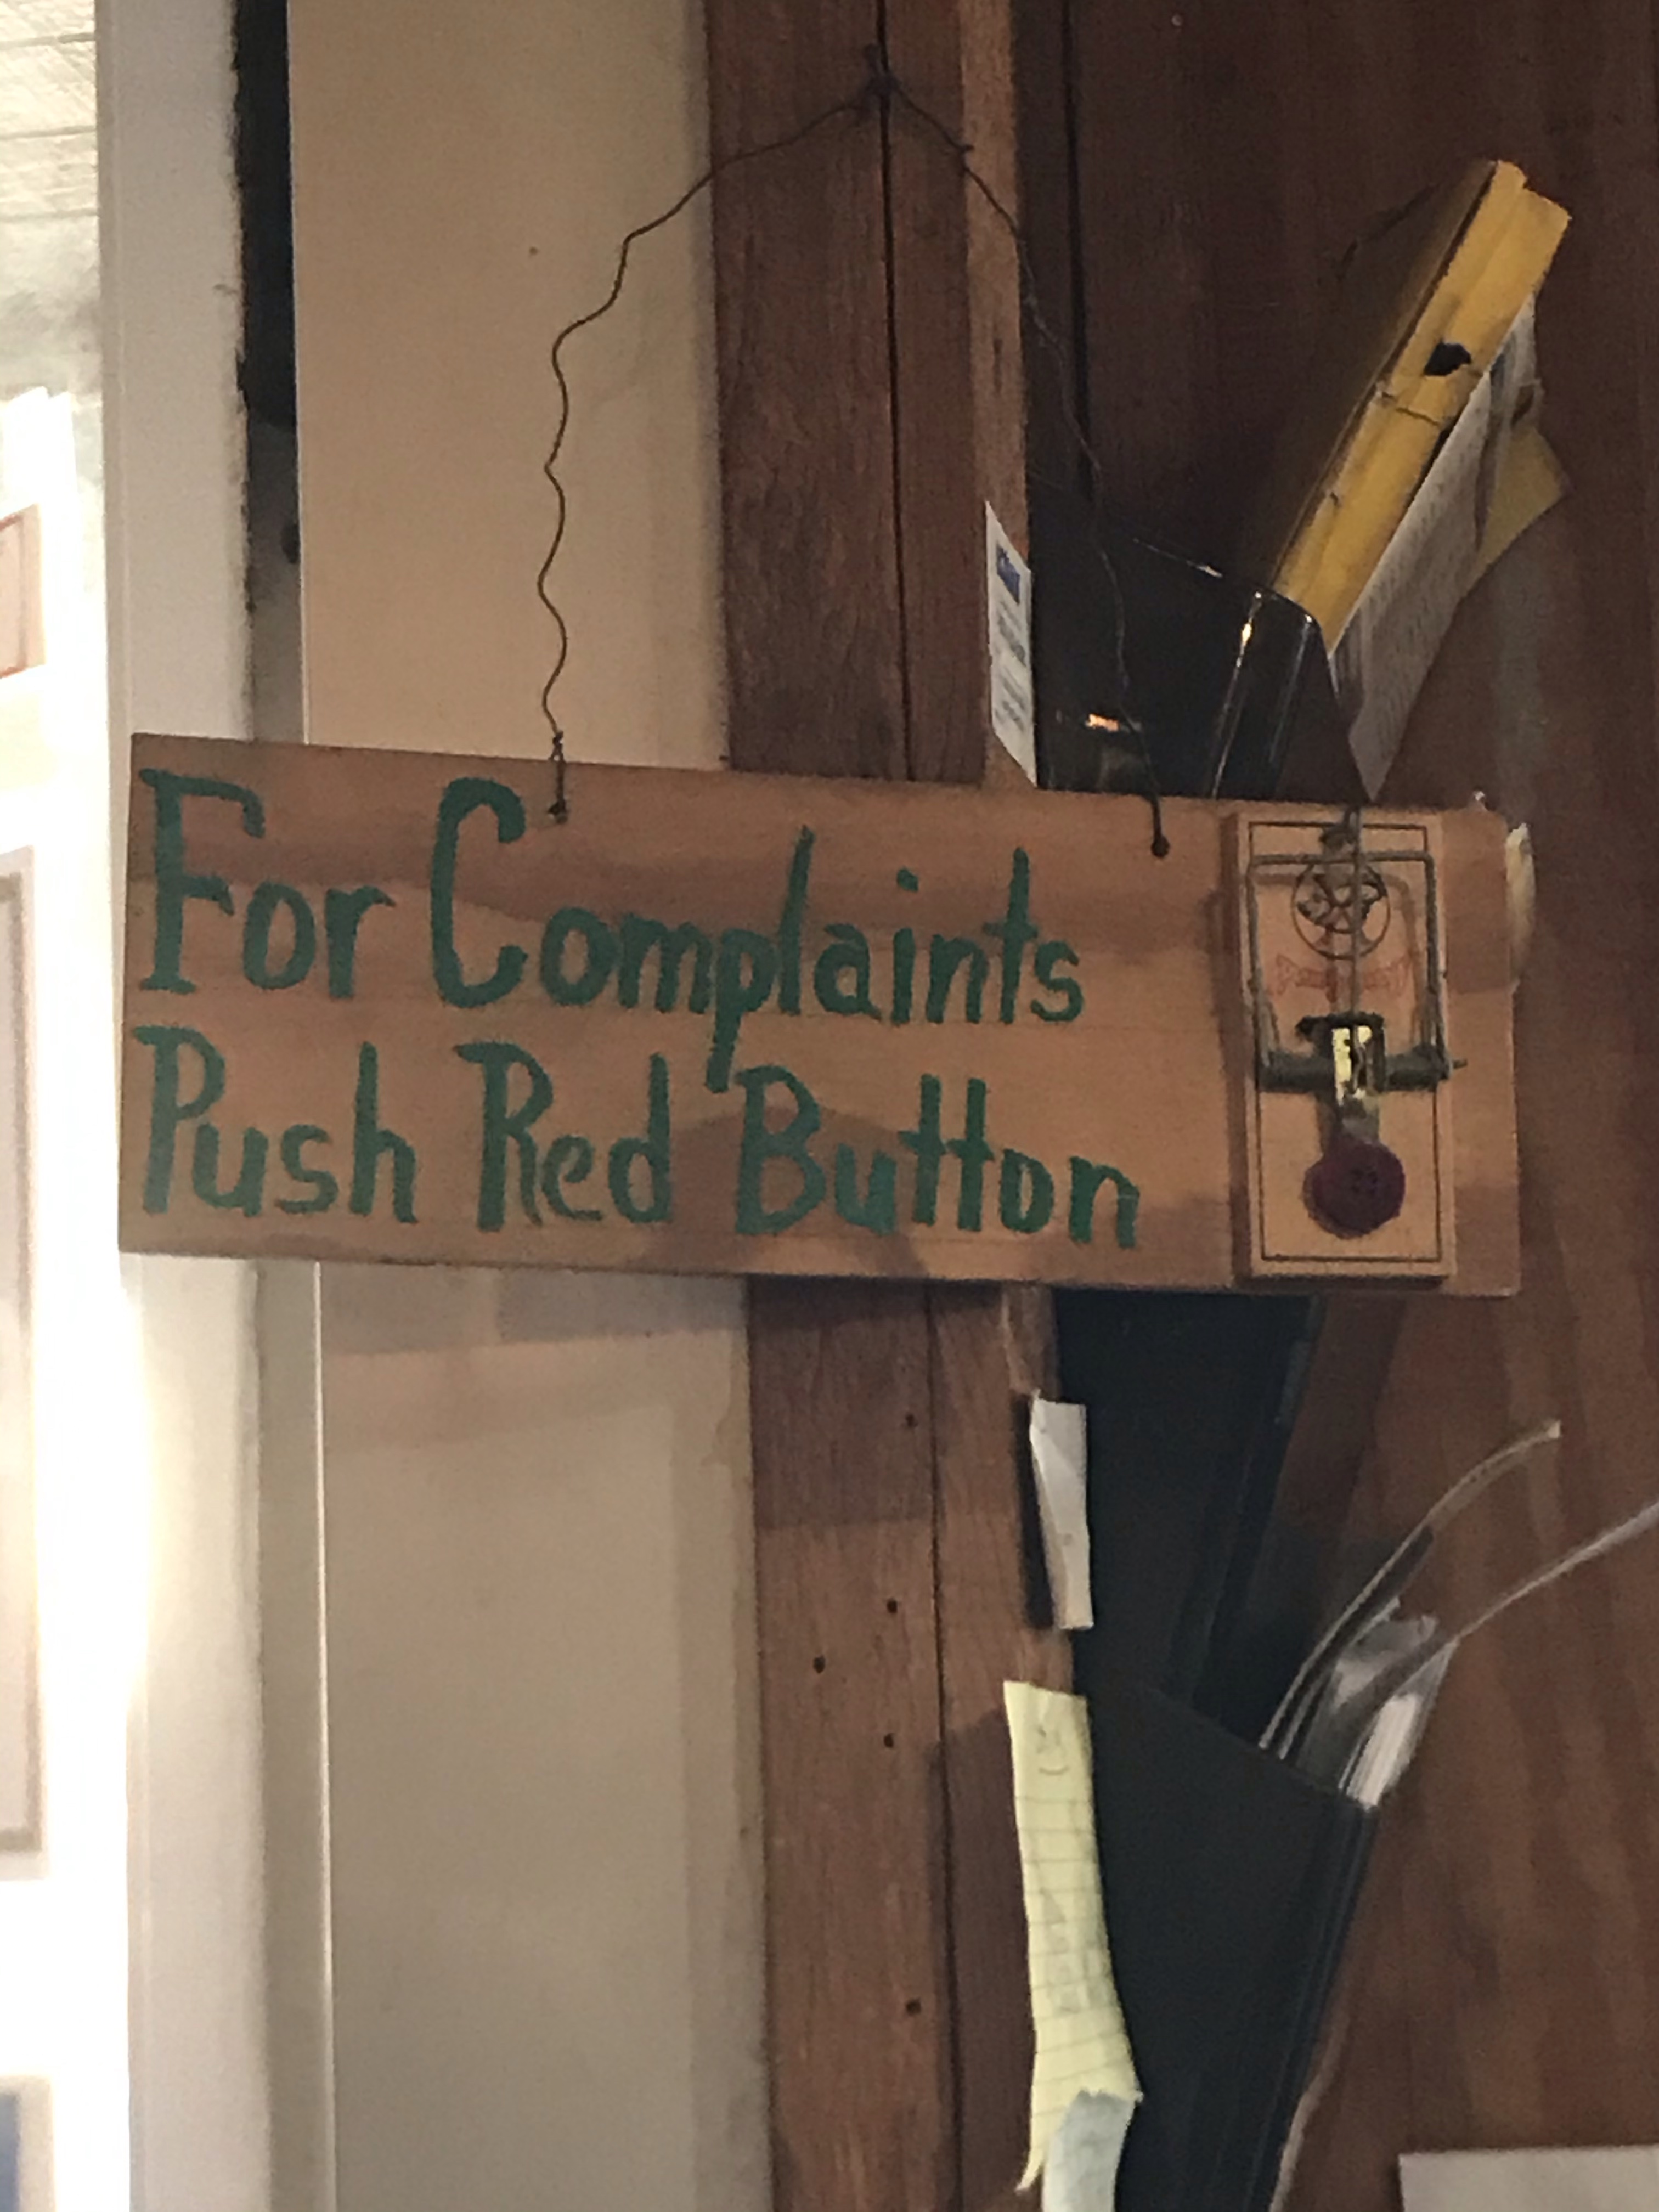 For Complaints
Push Red Button